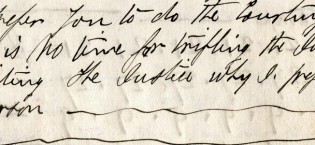 prefer you to do the Courting
is no time for trifling the In
iting the Justice why I pref
erson